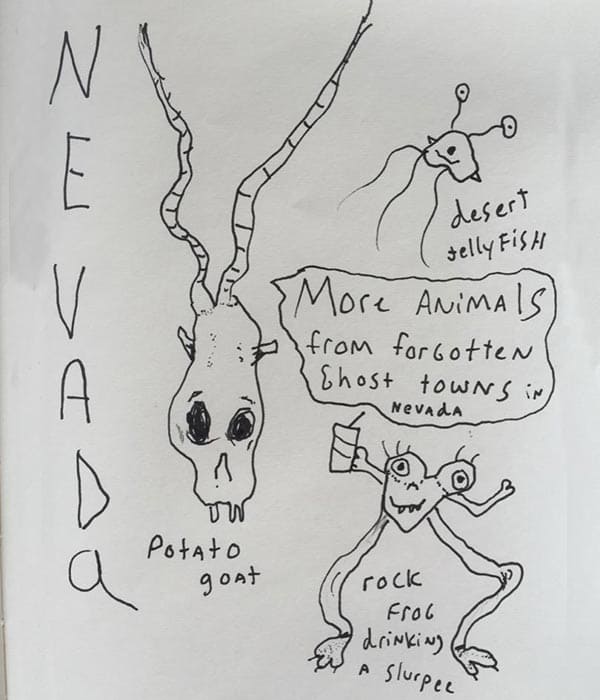 NEVADa
desert
jellyFisH
More ANiMAlS
from forGotteN
Ghost towNS iN
NevadA
PotAtO
goAt
rock
FroG
driNkiNg
A Slurpee